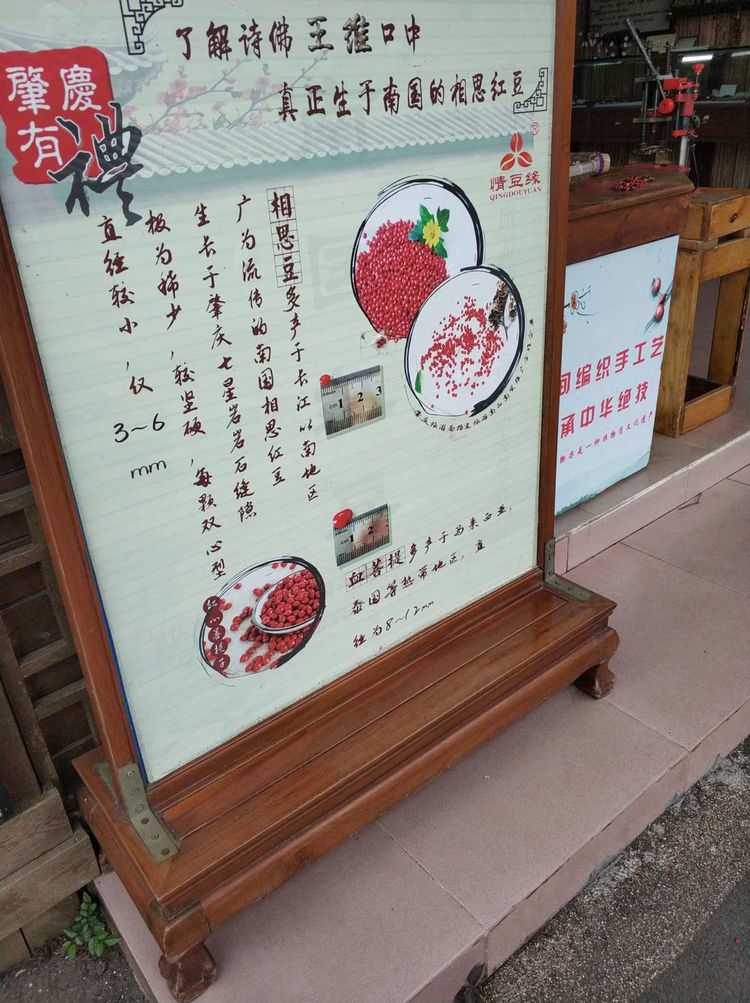 了解诗佛王维口中
真正生于南国的相思红豆
肇慶
有
禮
情豆缘
QINGDOUYUAN
®
相思豆多产于长江以南地区
广为流传的南国相思红豆
生长于肇庆七星岩岩石缝隙
极为稀少，较坚硬，每颗双心型
直径较小，仅
3~6
mm
1 2 3
1 2
血菩提多产于马来西亚，
泰国等热带地区，直
径为8~12mm
编织手工艺
承中华绝技